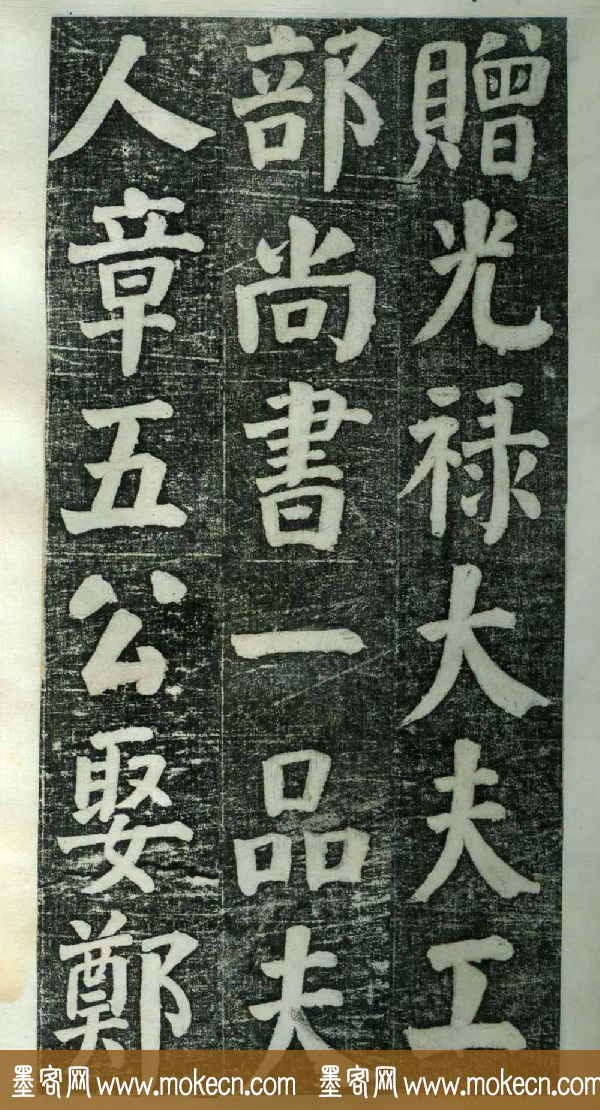 贈光禄大夫工
部尚書一品夫
人章五公娶鄭
墨客网 www.mokecn.com 墨客网 www.mokecn.com